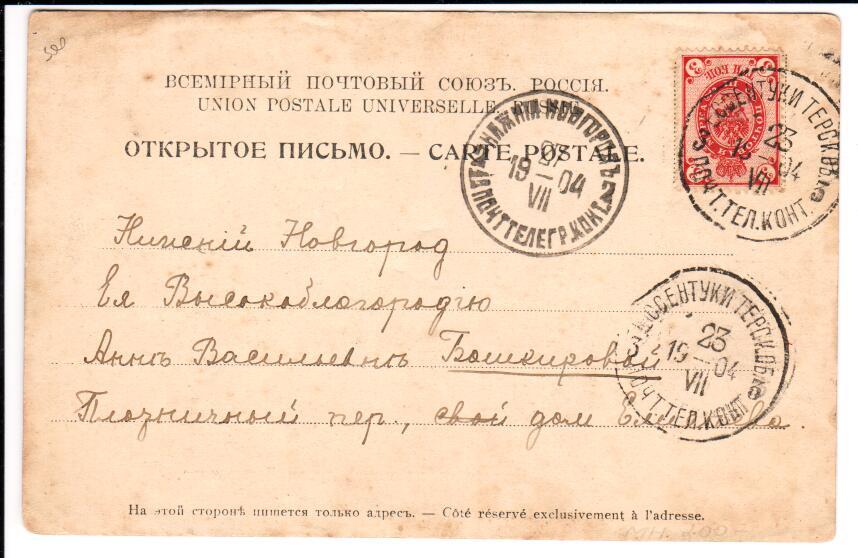 ВСЕМІРНЫЙ ПОЧТОВЫЙ СОЮЗЪ. РОССІЯ.
UNION POSTALE UNIVERSELLE. RUSSIE.
ОТКРЫТОЕ ПИСЬМО. — CARTE POSTALE.
НИЖНІЙ НОВГОРОДЪ
27
19 — 04
VII
ПОЧТ ТЕЛЕГР. КОНТ.
3 КОП
ЕССЕНТУКИ ТЕРСК. ОБЛ.
23
19 — 04
VII
ПОЧТ. ТЕЛ. КОНТ.
Нижній Новгород
Ея Высокоблагородію
Аннѣ Васильевнѣ Башкировой
пер., свой дом
ЕССЕНТУКИ ТЕРСК. ОБЛ.
23
19 — 04
VII
ПОЧТ. ТЕЛ. КОНТ.
На этой сторонѣ пишется только адресъ. — Côté réservé exclusivement à l'adresse.